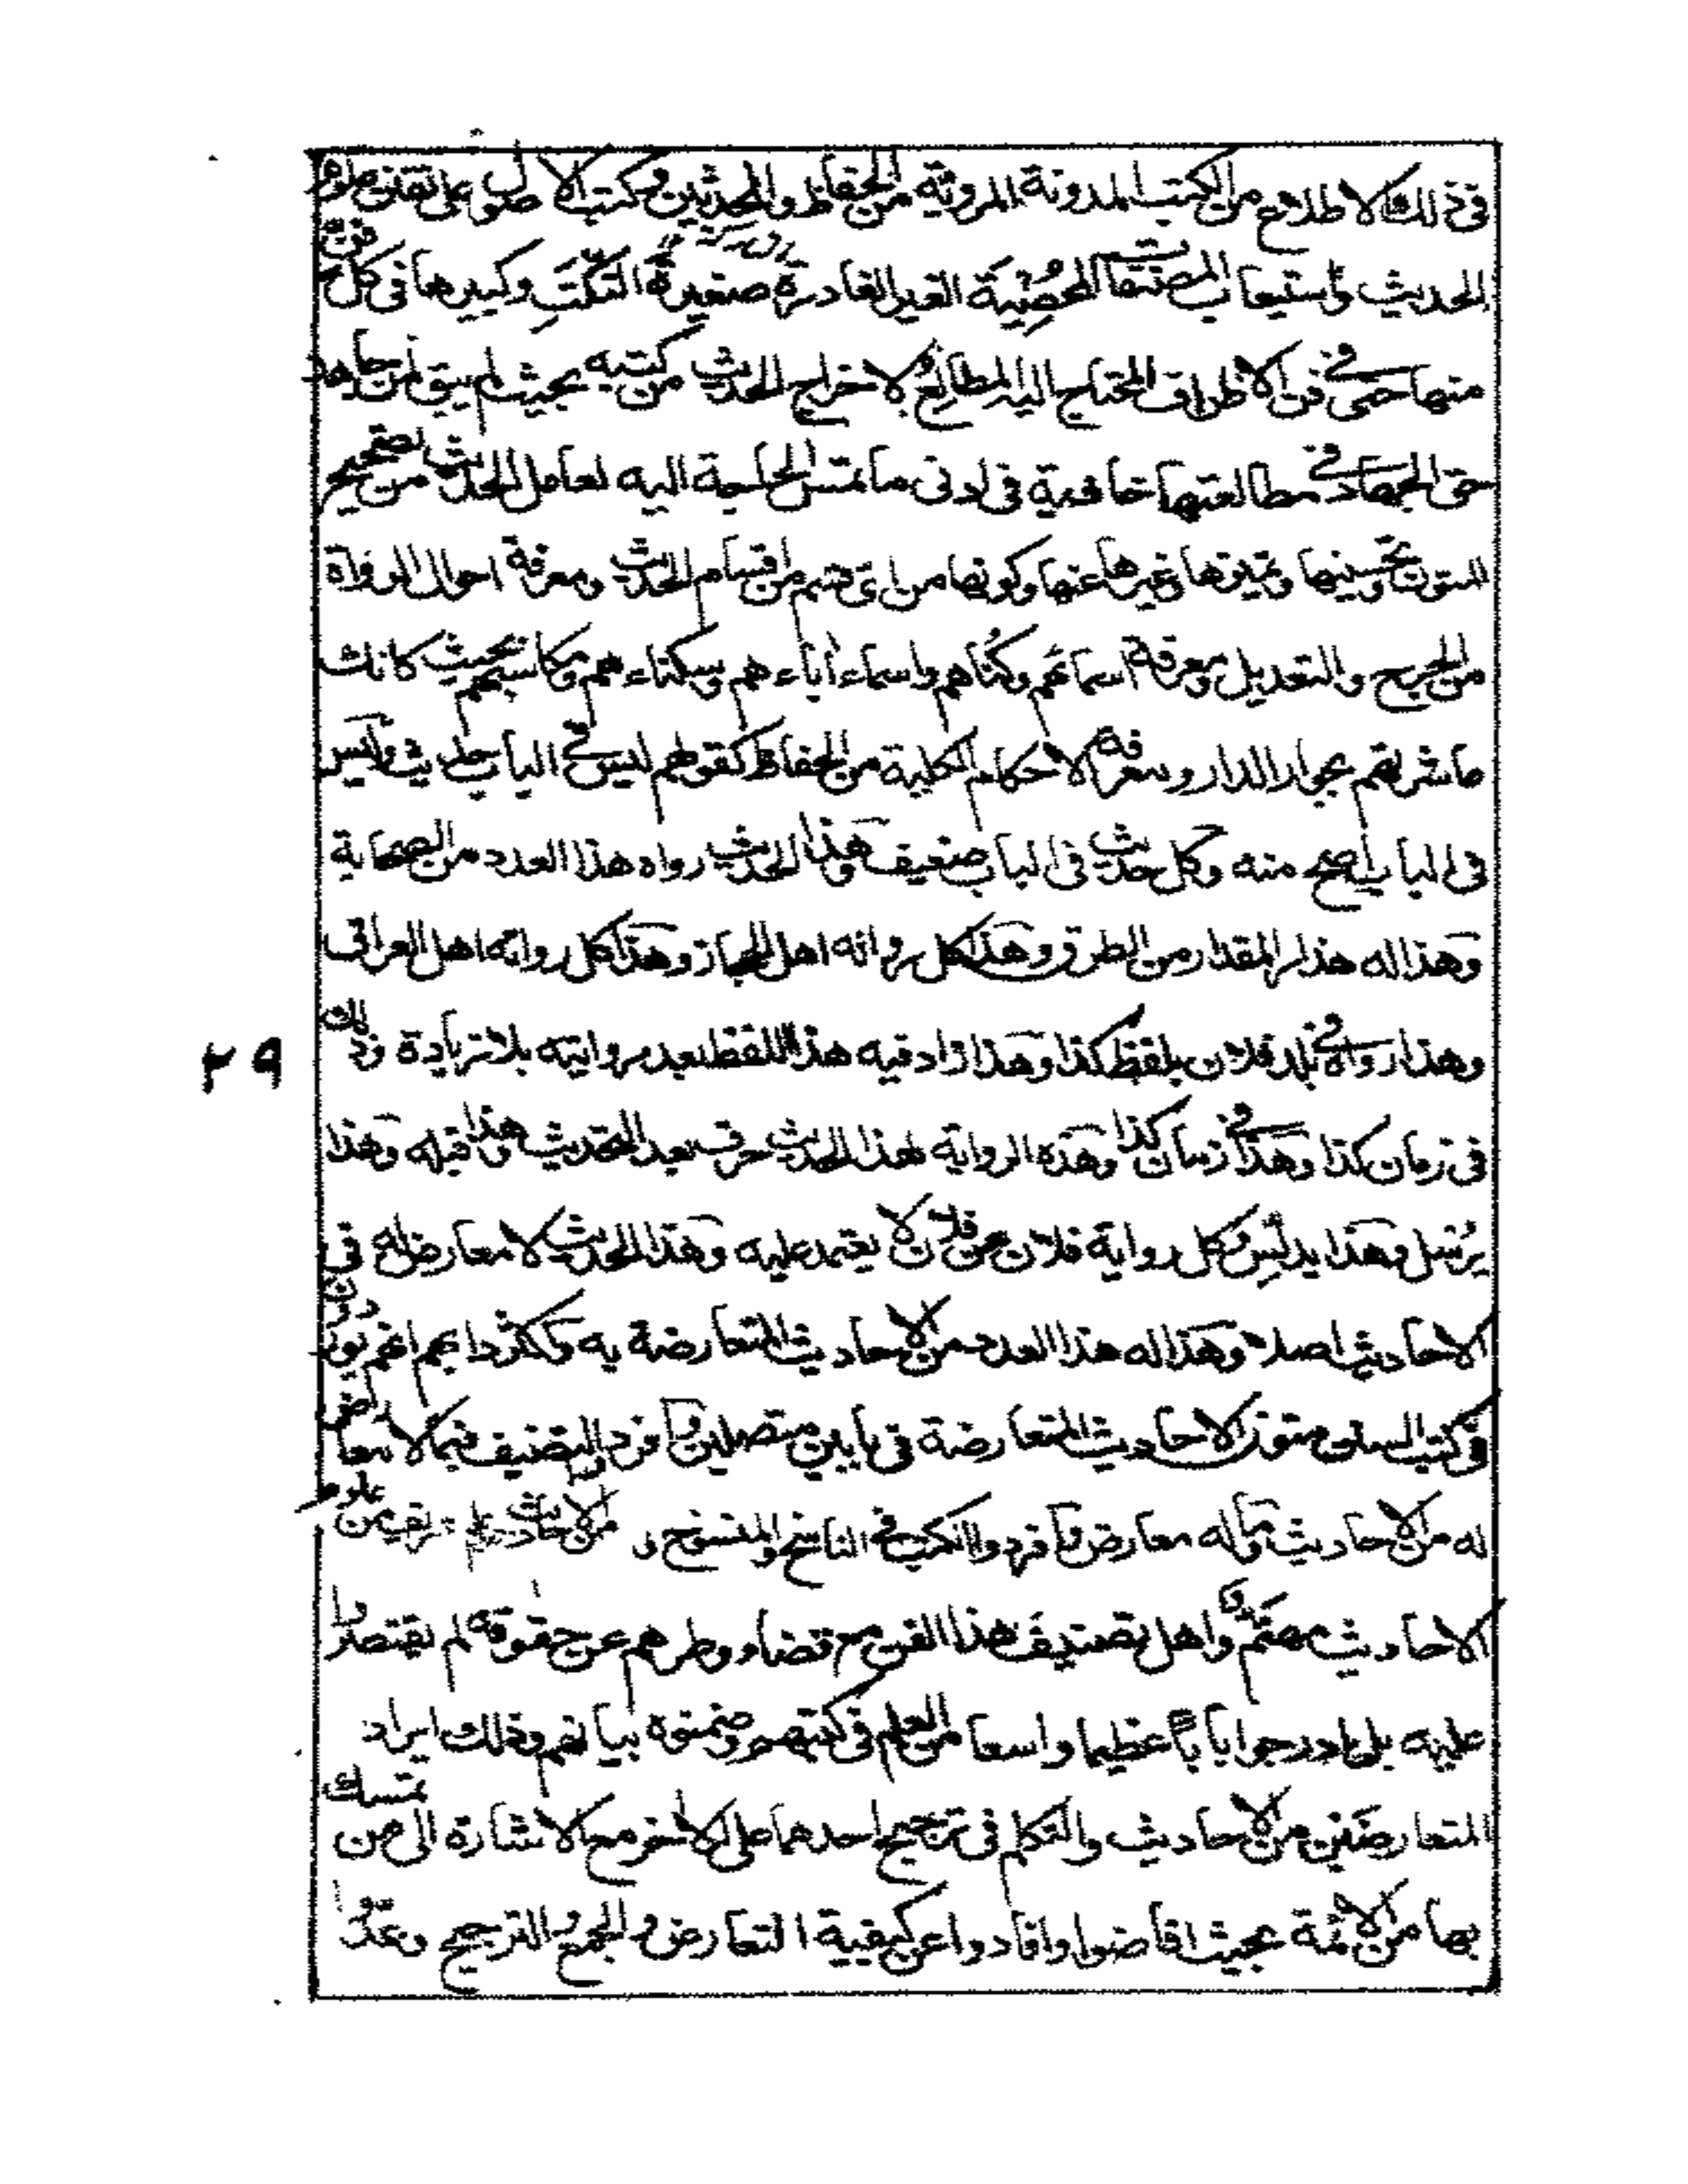 في ذلك الاطلاع من الكتب المدونة المروية من الحفاظ والمحدثين وكتب الاصول على تفنن علوم
الحديث واستيعاب المصنفات المحصية الغير الغادرة صغيرة النكت وكبيرها في كل فن
منها حتى في فن الاطراف المحتاج اليه المطالع لاخراج الحديث من كتبه بحيث لم يبق لمن جاهد
حق الجهاد في مطالعتها خافية في ادنى ما تمس الحاجة اليه لعامل الحديث من تصحيح
المتون وتحسينها وتميزها وغيرها عنها وكونها من اي قسم من اقسام الحديث ومعرفة احوال الرواة
من الجرح والتعديل ومعرفة اسمائهم وكناهم واسماء اباءهم وسكناءهم ومكاسبهم بحيث كانك
عاشرتهم بجوار الدار ومعرفة الاحكام الكلية من الحفاظ كقولهم ليس في الباب حديث وليس
في الباب اصح منه وكل حديث في الباب ضعيف وهذا الحديث رواه هذا العدد من الصحابة
وهذا له هذا المقدار من الطرق وهذا كل رواته اهل الحجاز وهذا كل رواته اهل العراق
وهذا رواه في بلد فلان بلفظ كذا وهذا زاد فيه هذا اللفظ بعد روايته بلا زيادة وذلك
في زمان كذا وهذا في زمان كذا وهذه الرواية لهذا الحديث حرف بعد التحديث وهذا قبله وهذا
يرسل وهذا يدلس وكل رواية فلان عن فلان لا يعتمد عليه وهذا الحديث لا معارض له في
الاحاديث اصلا وهذا له هذا العدد من الاحاديث المتعارضة به واكثر دابهم انهم يوردون
في كتب السنن متون الاحاديث المتعارضة في بابين متصلين وافردوا التصنيف فيما لا معارض
له من الاحاديث وما له معارض وافردوا الكتب في الناسخ والمنسوخ و من الاحاديث علم من علوم
الاحاديث مهتم واهل تصنيف هذا الفن مع قضاء وطرهم عن حقوقه لم يقتصروا
عليه بل ادرجوا بابا عظيما واسعا من العلم في كتبهم وضمنوه بيانهم وذلك ايراد
المتعارضين من الاحاديث والتكلم في ترجيح احدهما على الاخر مع الاشارة الى من تمسك
بها من الائمة بحيث افاضوا وافادوا عن كيفية التعارض والجمع والترجيح وعدوا
٢٩